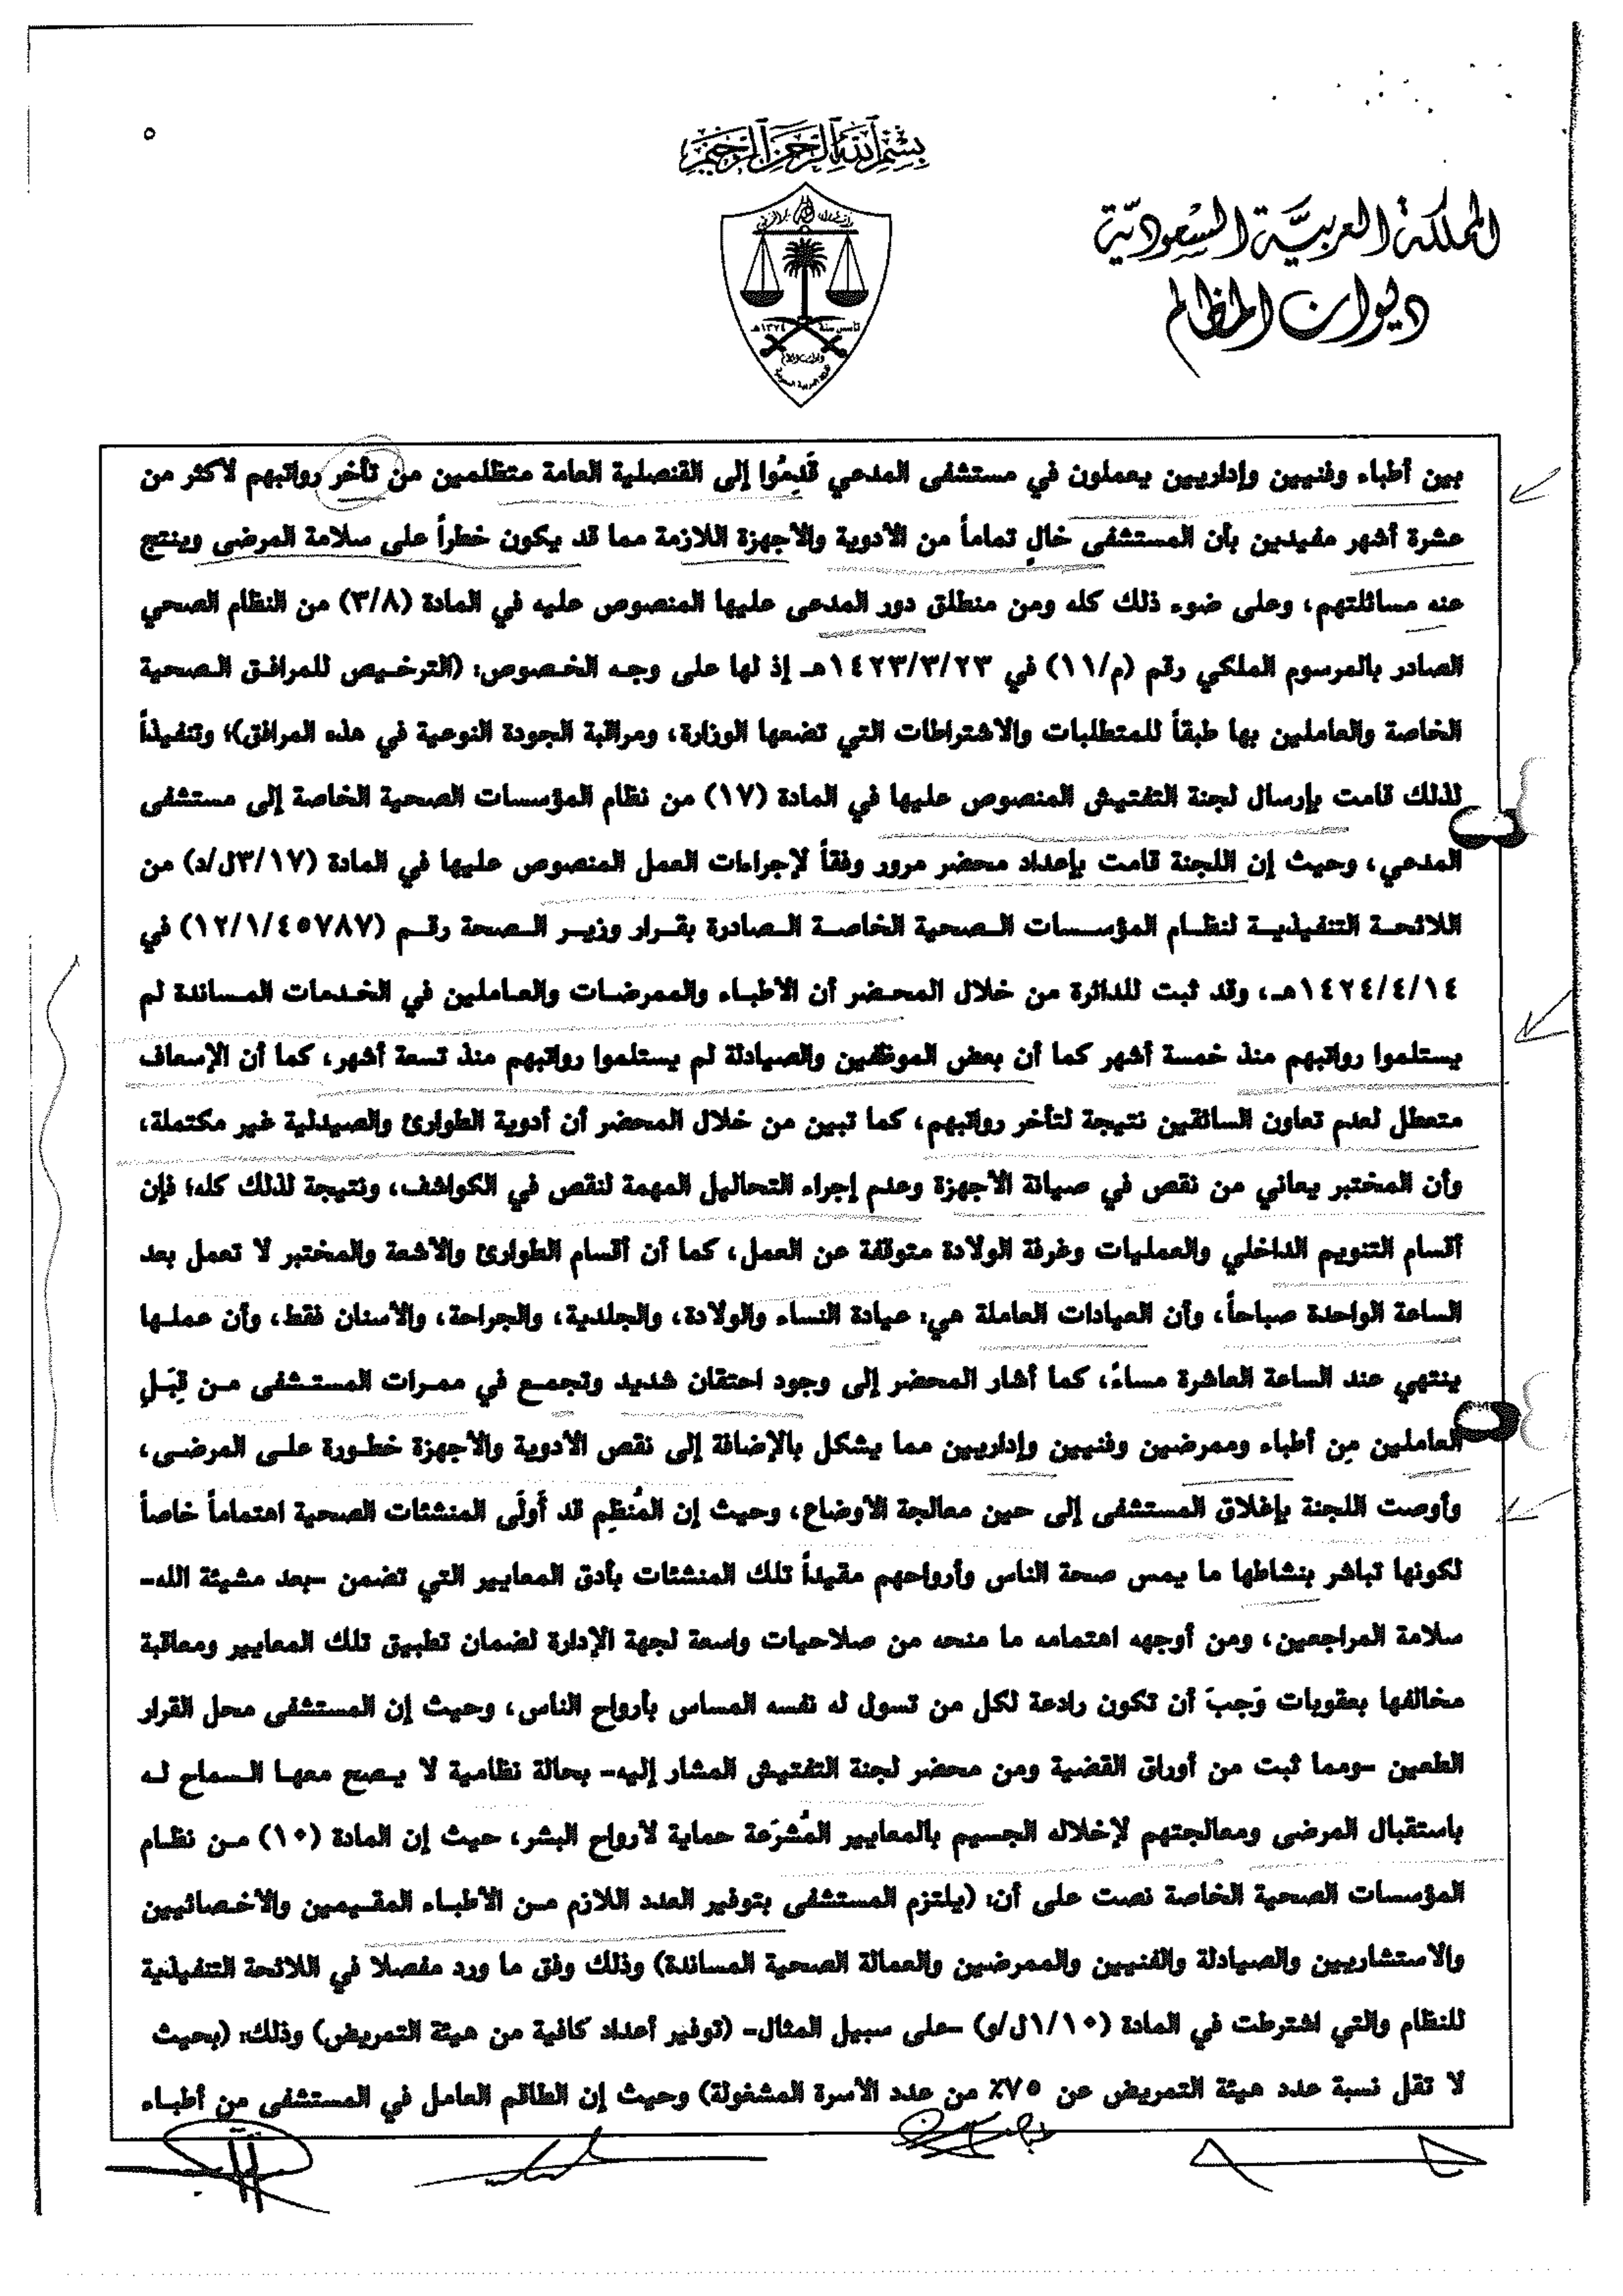 ٥
بسم الله الرحمن الرحيم
المملكة العربية السعودية
ديوان المظالم
تأسس سنة ١٣٧٤هـ
بين أطباء وفنيين وإداريين يعملون في مستشفى المدعي قَدِمُوا إلى القنصلية العامة متظلمين من تأخر رواتبهم لأكثر من
عشرة أشهر مفيدين بأن المستشفى خالٍ تماماً من الأدوية والأجهزة اللازمة مما قد يكون خطراً على سلامة المرضى وينتج
عنه مسائلتهم، وعلى ضوء ذلك كله ومن منطلق دور المدعى عليها المنصوص عليه في المادة (٣/٨) من النظام الصحي
الصادر بالمرسوم الملكي رقم (م/١١) في ١٤٢٣/٣/٢٣هـ إذ لها على وجه الخصوص: (الترخيص للمرافق الصحية
الخاصة والعاملين بها طبقاً للمتطلبات والاشتراطات التي تضعها الوزارة، ومراقبة الجودة النوعية في هذه المرافق)؛ وتنفيذاً
لذلك قامت بإرسال لجنة التفتيش المنصوص عليها في المادة (١٧) من نظام المؤسسات الصحية الخاصة إلى مستشفى
المدعي، وحيث إن اللجنة قامت بإعداد محضر مرور وفقاً لإجراءات العمل المنصوص عليها في المادة (٣/١٧ل/د) من
اللائحة التنفيذية لنظام المؤسسات الصحية الخاصة الصادرة بقرار وزير الصحة رقم (١٢/١/٤٥٧٨٧) في
١٤٢٤/٤/١٤هـ، وقد ثبت للدائرة من خلال المحضر أن الأطباء والممرضات والعاملين في الخدمات المساندة لم
يستلموا رواتبهم منذ خمسة أشهر كما أن بعض الموظفين والصيادلة لم يستلموا رواتبهم منذ تسعة أشهر، كما أن الإسعاف
متعطل لعدم تعاون السائقين نتيجة لتأخر رواتبهم، كما تبين من خلال المحضر أن أدوية الطوارئ والصيدلية غير مكتملة،
وأن المختبر يعاني من نقص في صيانة الأجهزة وعدم إجراء التحاليل المهمة لنقص في الكواشف، ونتيجة لذلك كله؛ فإن
أقسام التنويم الداخلي والعمليات وغرفة الولادة متوقفة عن العمل، كما أن أقسام الطوارئ والأشعة والمختبر لا تعمل بعد
الساعة الواحدة صباحاً، وأن العيادات العاملة هي: عيادة النساء والولادة، والجلدية، والجراحة، والأسنان فقط، وأن عملها
ينتهي عند الساعة العاشرة مساءً، كما أشار المحضر إلى وجود احتقان شديد وتجمع في ممرات المستشفى من قِبَلِ
العاملين مِن أطباء وممرضين وفنيين وإداريين مما يشكل بالإضافة إلى نقص الأدوية والأجهزة خطورة على المرضى،
وأوصت اللجنة بإغلاق المستشفى إلى حين معالجة الأوضاع، وحيث إن المُنظِم قد أَولَى المنشئات الصحية اهتماماً خاصاً
لكونها تباشر بنشاطها ما يمس صحة الناس وأرواحهم مقيداً تلك المنشئات بأدق المعايير التي تضمن -بعد مشيئة الله-
سلامة المراجعين، ومن أوجهه اهتمامه ما منحه من صلاحيات واسعة لجهة الإدارة لضمان تطبيق تلك المعايير ومعاقبة
مخالفها بعقوبات وَجبَ أن تكون رادعة لكل من تسول له نفسه المساس بأرواح الناس، وحيث إن المستشفى محل القرار
الطعين -ومما ثبت من أوراق القضية ومن محضر لجنة التفتيش المشار إليه- بحالة نظامية لا يصح معها السماح له
باستقبال المرضى ومعالجتهم لإخلاله الجسيم بالمعايير المُشرَعة حماية لأرواح البشر، حيث إن المادة (١٠) من نظام
المؤسسات الصحية الخاصة نصت على أن: (يلتزم المستشفى بتوفير العدد اللازم من الأطباء المقيمين والأخصائيين
والاستشاريين والصيادلة والفنيين والممرضين والعمالة الصحية المساندة) وذلك وفق ما ورد مفصلا في اللائحة التنفيذية
للنظام والتي اشترطت في المادة (١/١٠ل/و) -على سبيل المثال- (توفير أعداد كافية من هيئة التمريض) وذلك: (بحيث
لا تقل نسبة عدد هيئة التمريض عن ٧٥٪ من عدد الأسرة المشغولة) وحيث إن الطاقم العامل في المستشفى من أطباء